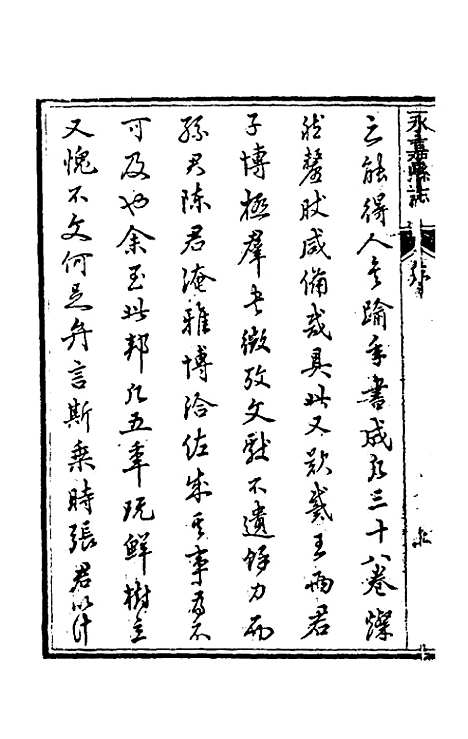 永嘉縣志
之能得人矣踰年書成凡三十八卷燦
然釐然咸備哉具此又歎戴王兩君
子博極羣書微攷文獻不遺餘力而
孫君陳君淹雅博洽佐成其事為不
可及也余至此邦凡五年既鮮樹立
又愧不文何足弁言斯乘時張君以計